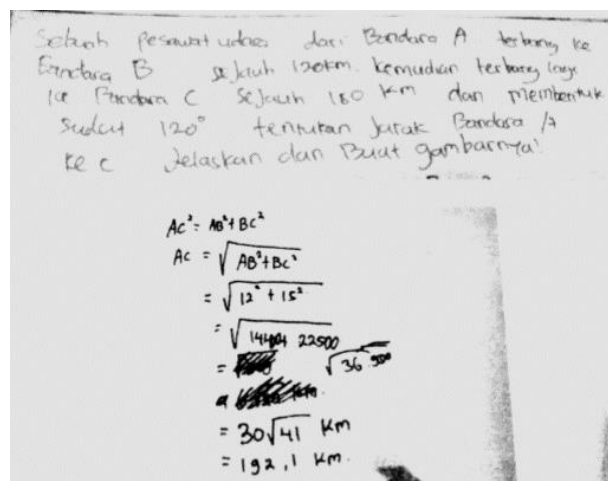 Sebuah pesawat udara dari Bandara A terbang ke
Bandara B sejauh 120km. kemudian terbang lagi
ke Bandara C sejauh 150 km dan membentuk
sudut 120° tentukan jarak Bandara A
ke C Jelaskan dan Buat gambarnya!
AC² = AB² + BC²
AC = √AB² + BC²
= √12² + 15²
= √14400 22500
= √36.900
= 30√41 km
= 192,1 km.